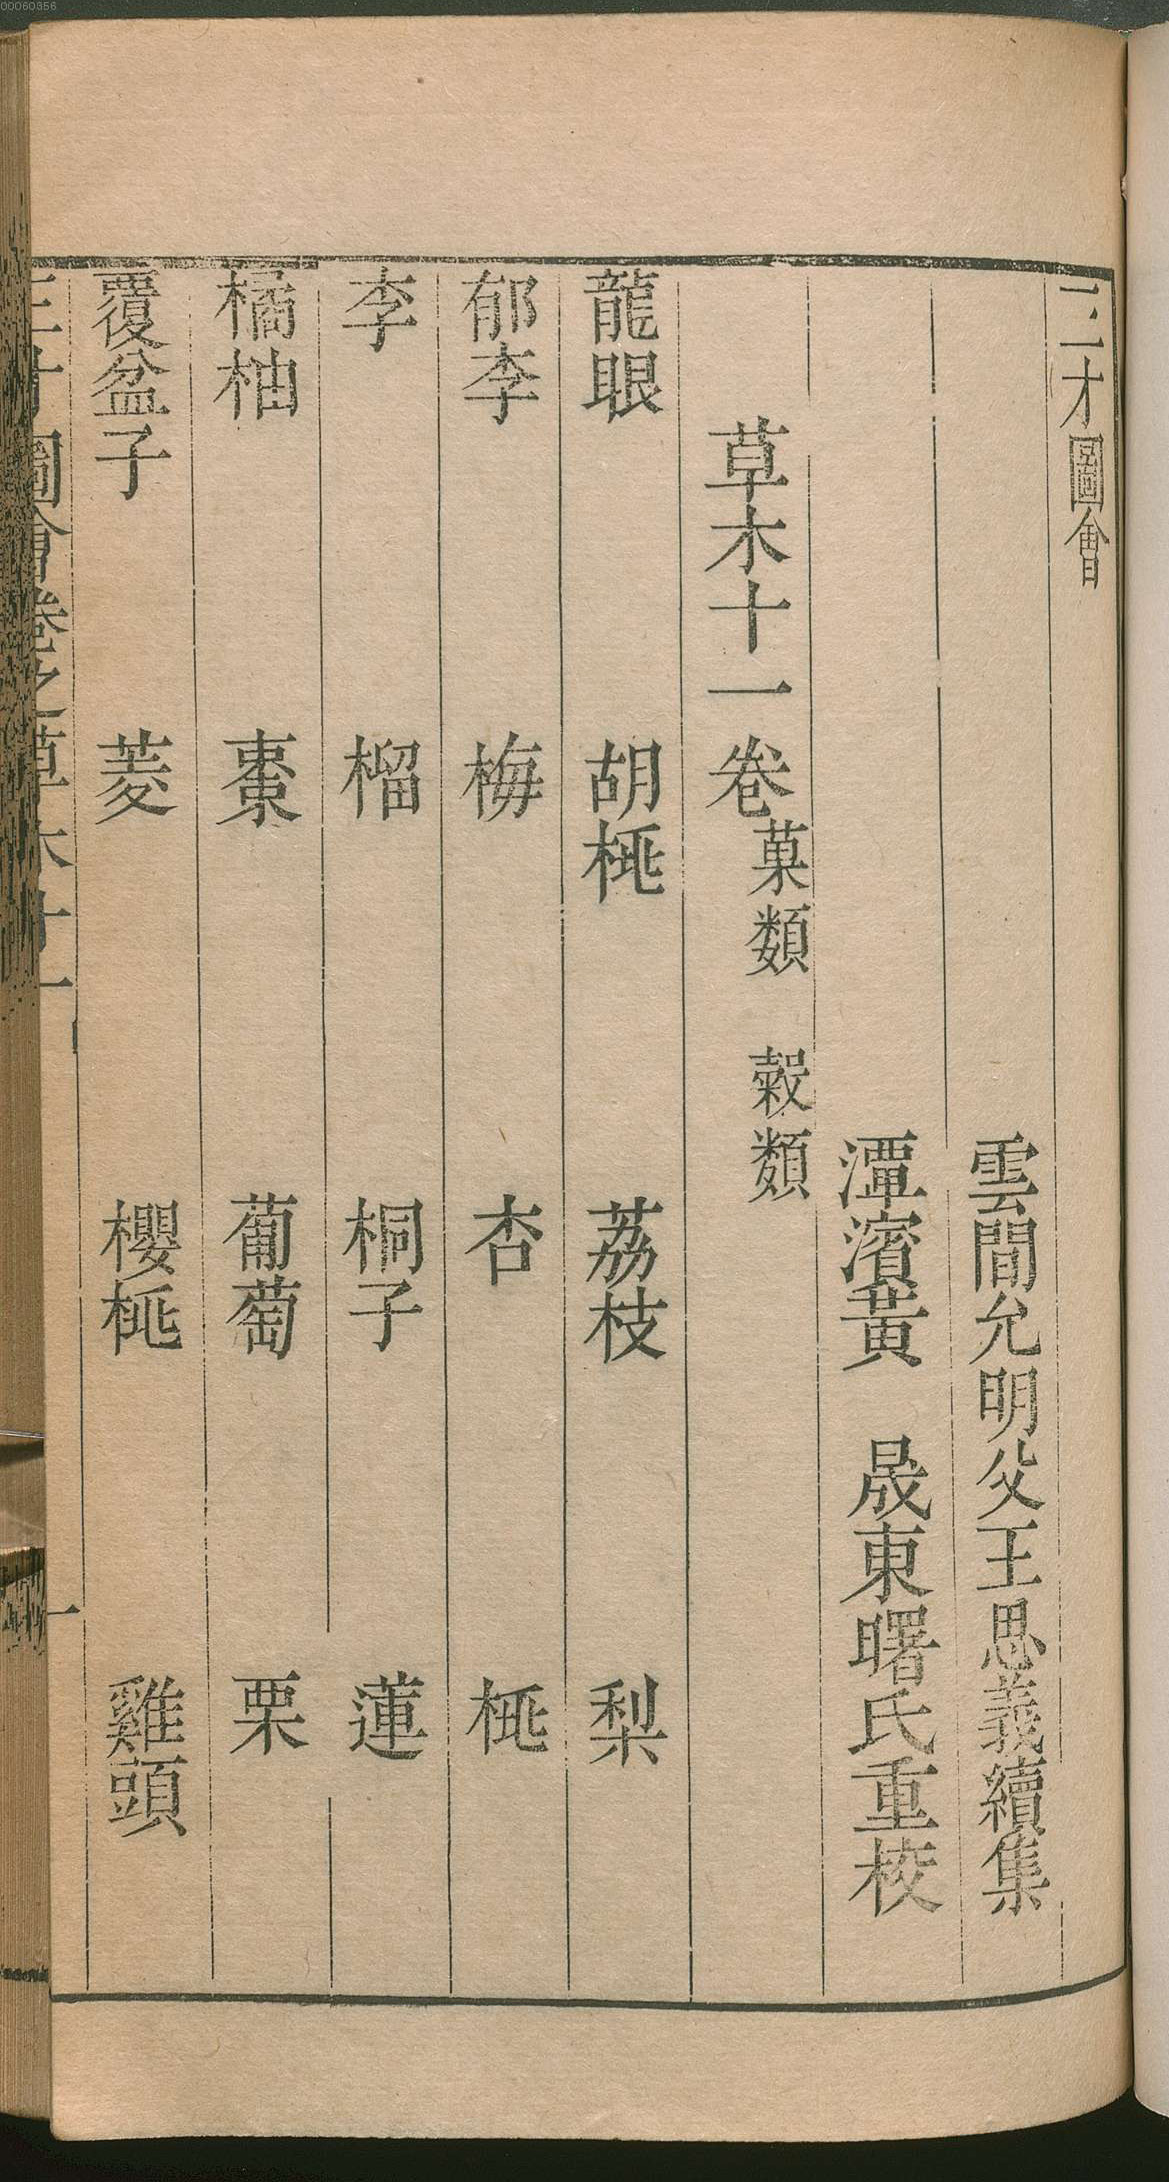 00060356
三才圖會
雲間允明父王思義續集
潭濱黃　晟東曙氏重校
草木十一卷菓類　糓類
龍眼　胡桃　荔枝　梨
郁李　梅　杏　桃
李　榴　桐子　蓮
橘柚　棗　葡萄　栗
覆盆子　菱　櫻桃　雞頭
三才圖會卷之草木十一　一